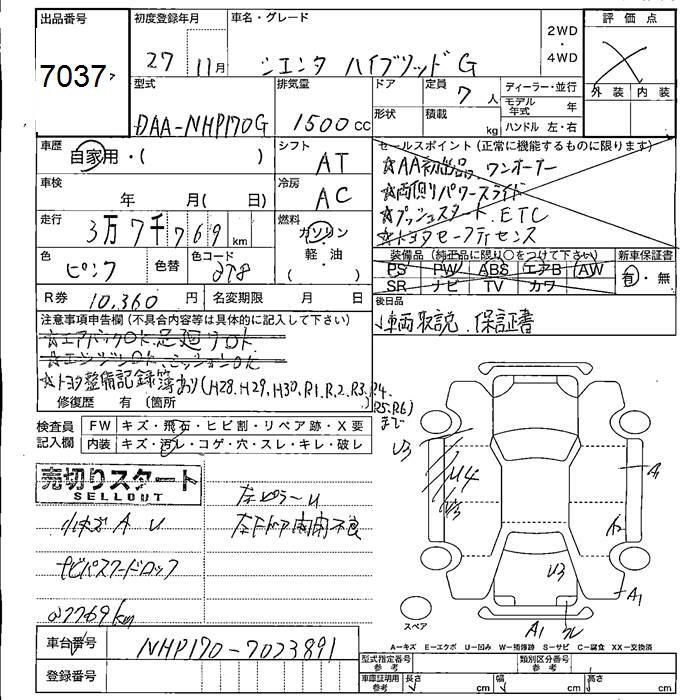 出品番号 初度登録年月 車名・グレード 2WD・4WD 評価点
7037 27 11月 シエンタ ハイブリッド G
外装 内装
型式 排気量 ドア 定員 7人 ディーラー・並行
モデル年式 年
DAA-NHP170G 1500cc 形状 積載 kg ハンドル 左・右
車歴 自家用・( ) シフト AT セールスポイント (正常に機能するものに限ります)
☆AA初出品、ワンオーナー
車検 年 月( 日) 冷房 AC ☆両側リパワースライド
☆プッシュスタート、ETC
走行 3万7千769km 燃料 ガソリン・軽・油( ) ☆トヨタセーフティセンス
装備品 (純正品に限り○をつけて下さい) 新車保証書
色 ピンク 色替 色コード 2T8 PS PW ABS エアB AW 有・無
SR ナビ TV カワ
R券 10,360円 名変期限 月 日 後日品
注意事項申告欄 (不具合内容等は具体的に記入して下さい) 車両取説、保証書
☆エアバックOK、足廻りOK
☆エンジンOK、ミッションOK
☆トヨタ整備記録簿あり(H28.H29.H30.R1.R.2.R3.R4.
R5.R6)まで
修復歴 有 (箇所 )
検査員記入欄 FW キズ・飛石・ヒビ割・リペア跡・X要
内装 キズ・汚レ・コゲ・穴・スレ・キレ・破レ
売切りスタート
SELLOUT
小キズ A U
左ピラーU
左Fドア開閉不良
ナビパスワードロック
@7769km
U3
U4
U3
A1
U3
A1
A1
スペア
A=キズ E=エクボ U=凹み W=補修跡 S=サビ C=腐食 XX=交換済
車台番号 NHP170-7023891
型式指定番号 参考 類別区分番号 参考
登録番号 車庫証明用 参考 長さ cm 幅 cm 高さ cm